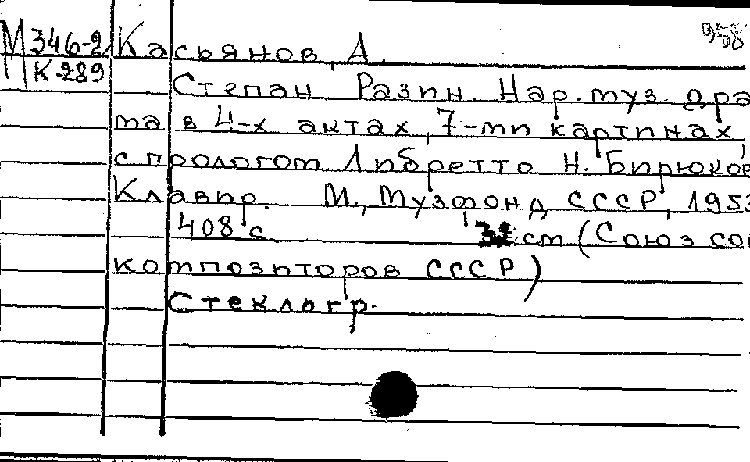 958
М 346-2 Касьянов, А.
К 289
Степан Разин. Нар. муз. дра
ма в 4-х актах, 7-ми картинах,
с прологом Либретто Н. Бирюков
Клавир. М., Музфонд СССР, 1953
408 с. см (Союз сов
композиторов СССР)
Стеклогр.